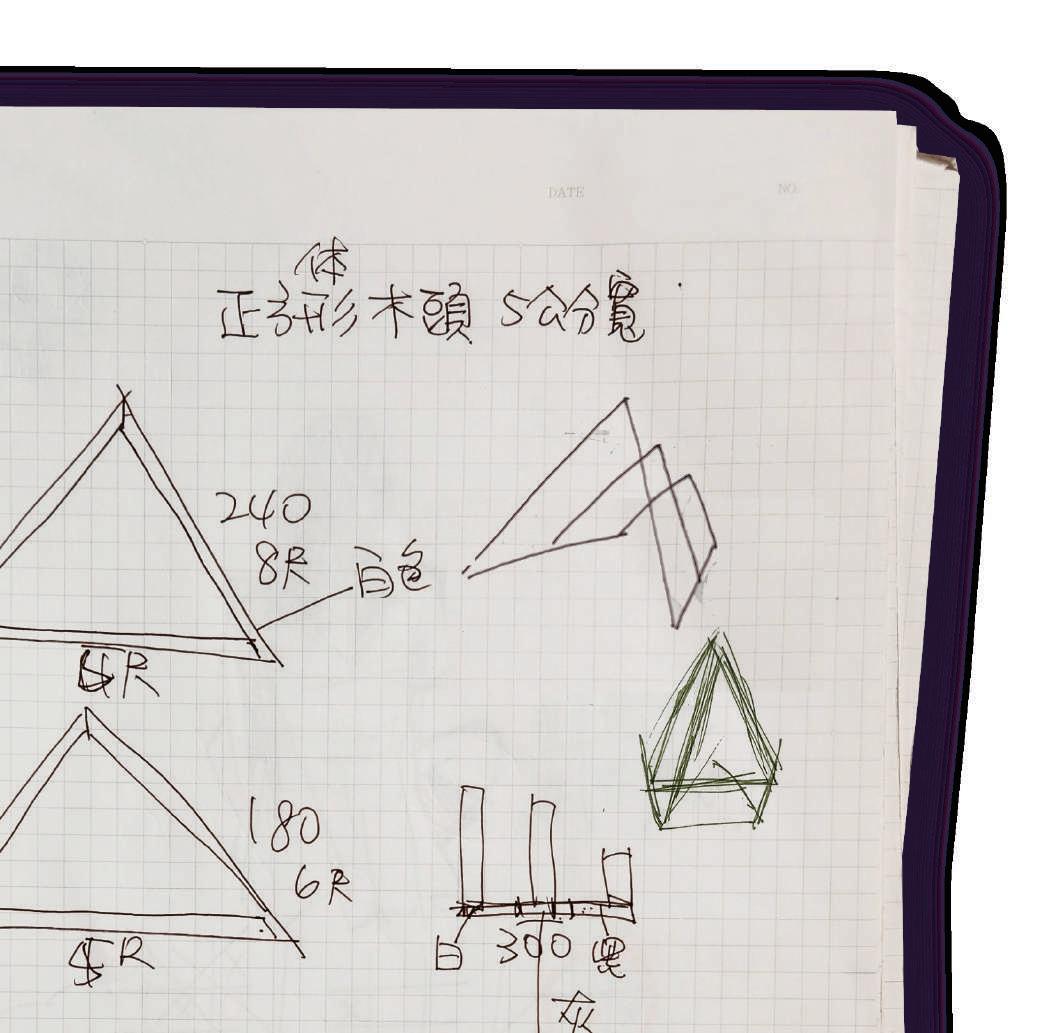 DATE
NO.
体
正方形木頭 5公分寬
240
8R
白色
R
180
6R
R
白
300
黑
灰